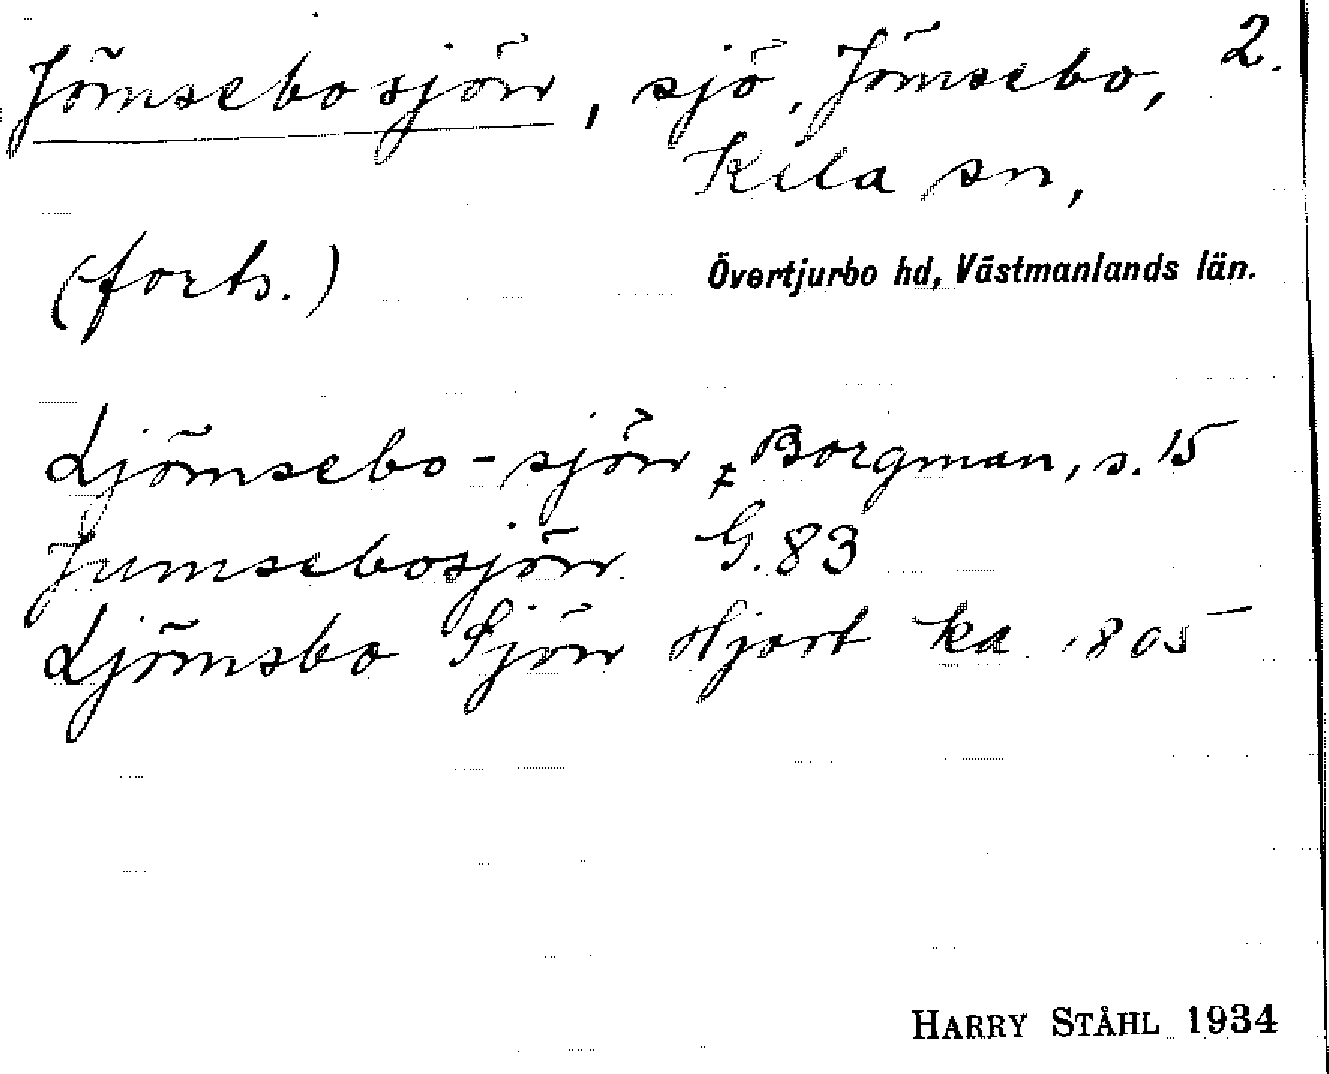 Jömsebosjön, sjö, Jömsebo, 2.
Kila sn,
(forts.) Övertjurbo hd, Västmanlands län.
Ljömsebo-sjön, Borgman, s. 15
Jumsebosjön G. 83
Ljömsbo Sjön Hjort ka 1805
HARRY STÅHL 1934